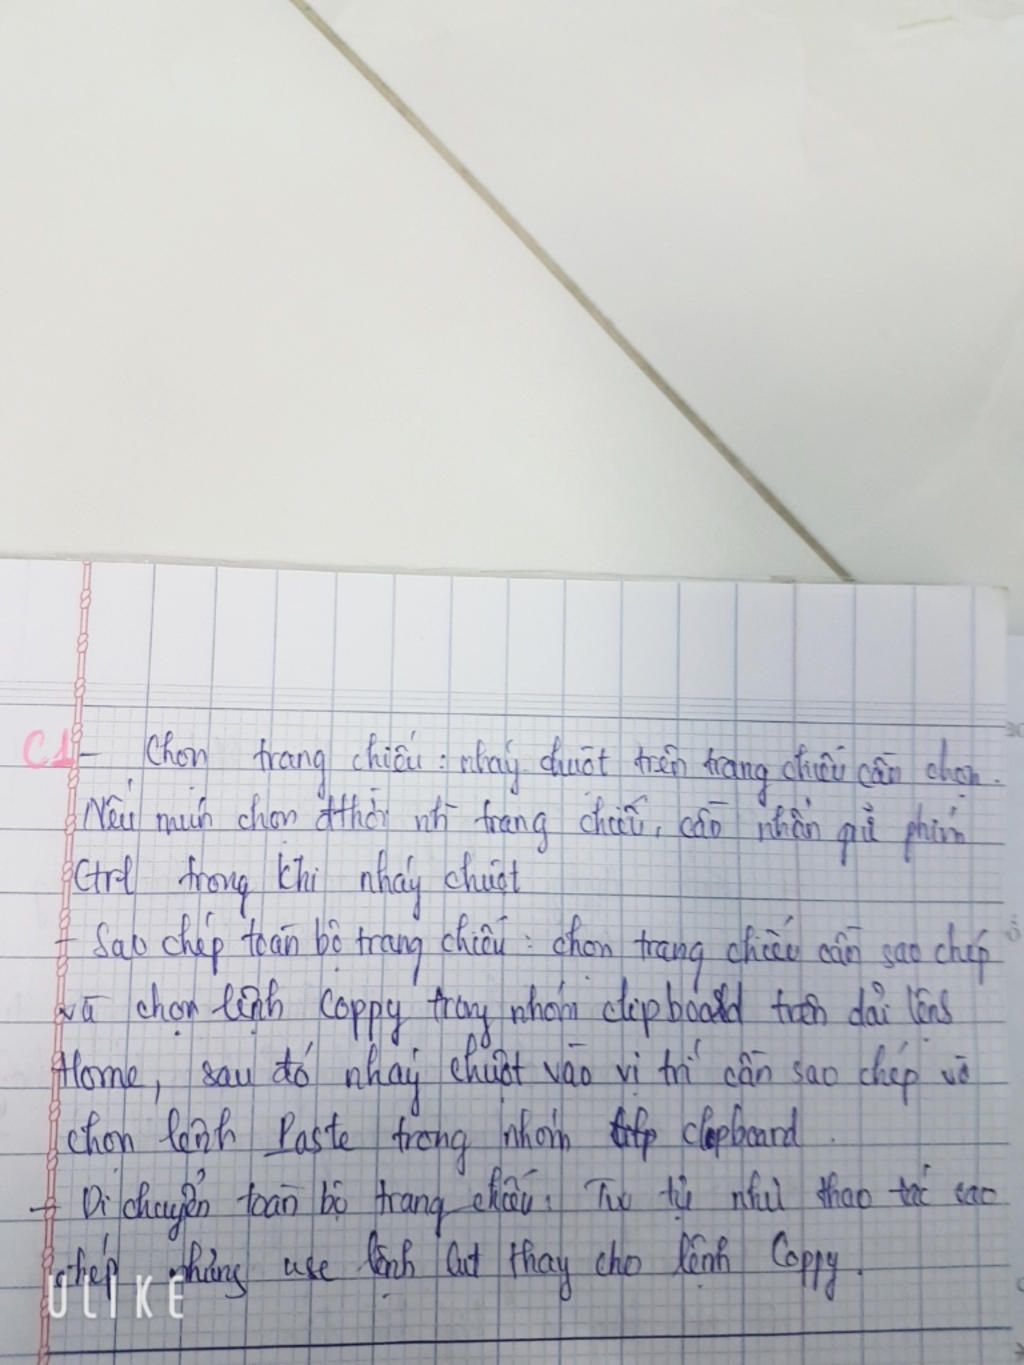 C1 - Chọn trang chiếu : nháy chuột trên trang chiếu cần chọn.
Nếu mún chọn đthời nh trang chiếu, cần nhấn giữ phím
Ctrl trong khi nháy chuột
+ Sao chép toàn bộ trang chiếu : chọn trang chiếu cần sao chép
và chọn lệnh Coppy trong nhóm clipboard trên dải lệnh
Home, sau đó nháy chuột vào vị trí cần sao chép và
chọn lệnh Paste trong nhóm clipboard.
+ Di chuyển toàn bộ trang chiếu: Tư tự như thao tác sao
chép nhưng use lệnh Cut thay cho lệnh Coppy.
ULIKE